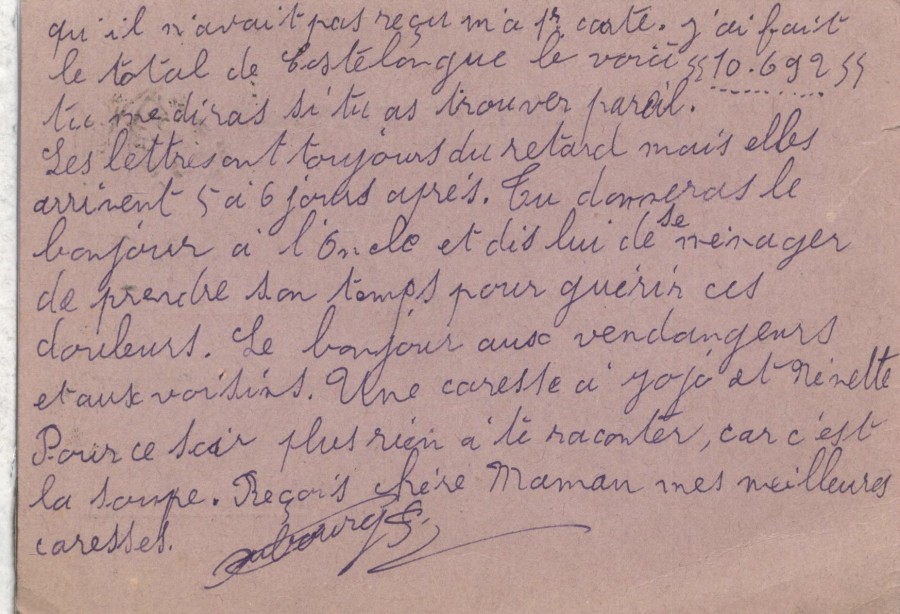 qu'il n'avait pas reçu ma 1r carte. j'ai fait
le total de Castelongue le voici "10.692"
tu me diras si tu as trouver pareil.
Les lettres ont toujours du retard mais elles
arrivent 5 à 6 jours après. Tu donneras le
bonjour à l'Oncle et dis lui de se ménager
de prendre son temps pour guérir ces
douleurs. Le bonjour aux vendangeurs
et aux voisins. Une caresse à Jojo et Ninette
Pour ce soir plus rien à te raconter, car c'est
la soupe. Reçois chère Maman mes meilleures
caresses.